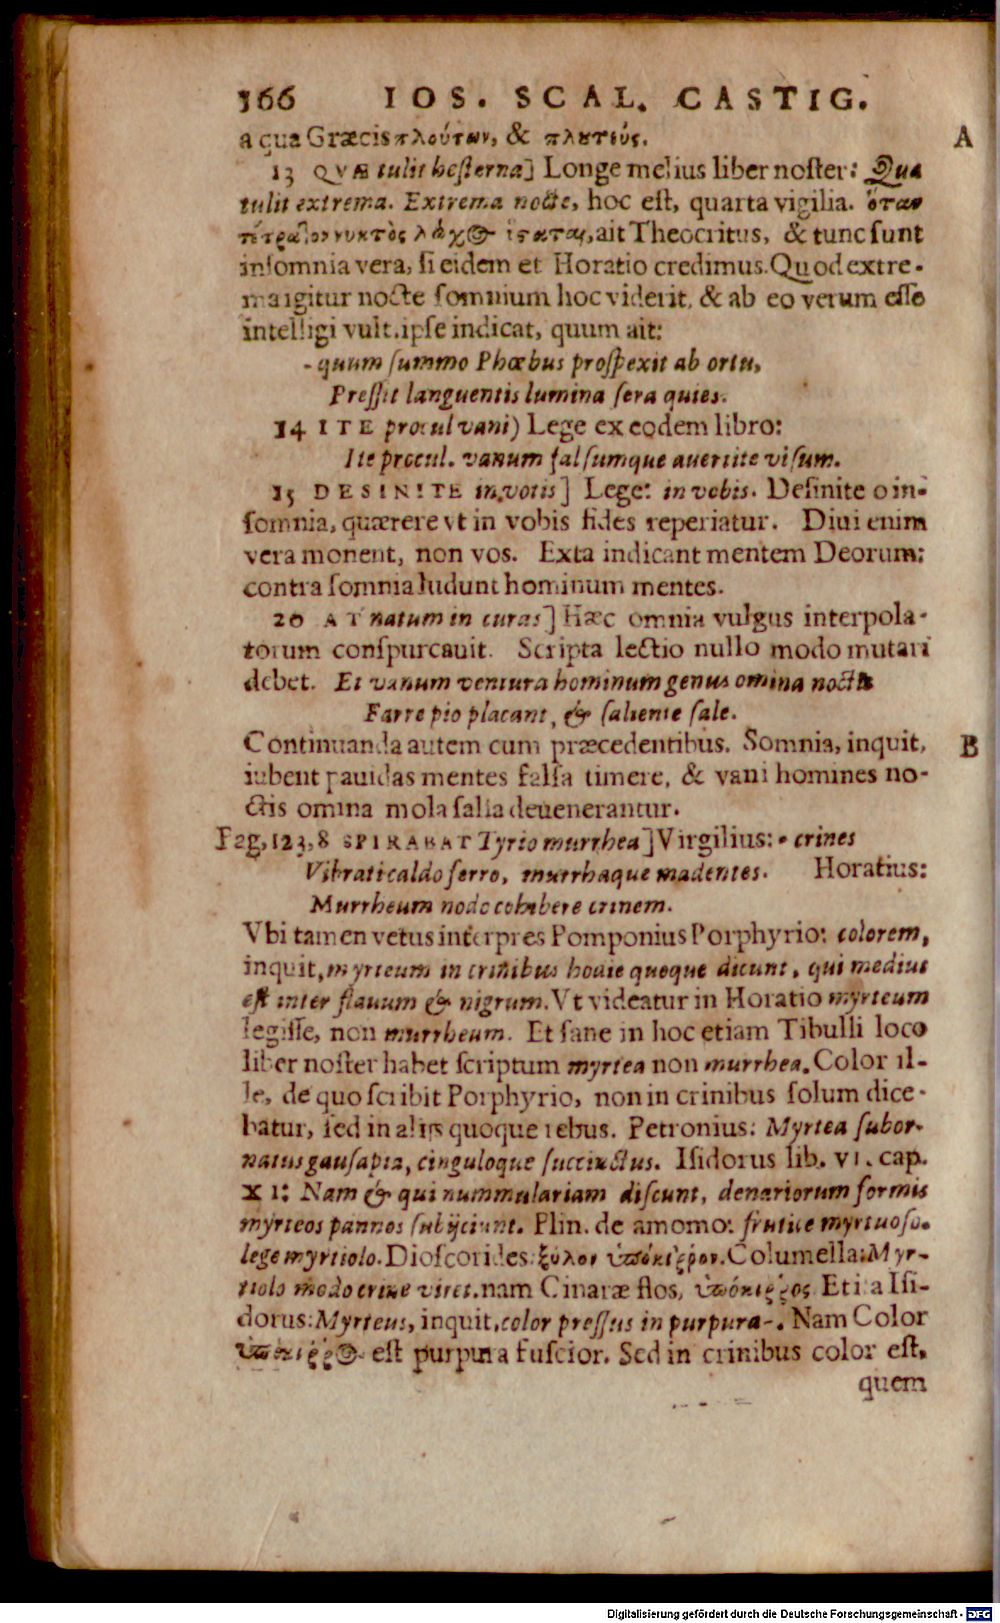 166 IOS. SCAL. CASTIG.
a qua Græcis πλούτων, & πλȣτεύς.
A
13 QVÆ tulit hesterna] Longe melius liber noster: Qua
tulit extrema. Extrema nocte, hoc est, quarta vigilia. ὅταν
τέτρατον νυκτὸς λάχος ἵσταται, ait Theocritus, & tunc sunt
insomnia vera, si eidem et Horatio credimus. Quod extre-
ma igitur nocte somnium hoc viderit, & ab eo verum esse
intelligi vult, ipse indicat, quum ait:
- quum summo Phœbus prospexit ab ortu,
Pressit languentis lumina sera quies.
14 ITE procul vani) Lege ex eodem libro:
Ite procul. vanum falsumque auertite visum.
15 DESINITE in votis] Lege: in vobis. Desinite o in-
somnia, quærere vt in vobis fides reperiatur. Diui enim
vera monent, non vos. Exta indicant mentem Deorum:
contra somnia ludunt hominum mentes.
20 AT natum in curas] Hæc omnia vulgus interpola-
torum conspurcauit. Scripta lectio nullo modo mutari
debet. Et vanum ventura hominum genus omina noctis
Farre pio placant, & saliente sale.
Continuanda autem cum præcedentibus. Somnia, inquit,
B
iubent pauidas mentes falsa timere, & vani homines no-
ctis omina mola salsa deuenerantur.
Pag, 123, 8 SPIRABAT Tyrio murrhea] Virgilius: - crines
Vibrati caldo ferro, murrhaque madentes. Horatius:
Murrheum nodo cohibere crinem.
Vbi tamen vetus interpres Pomponius Porphyrio: colorem,
inquit, myrteum in crinibus hodie quoque dicunt, qui medius
est inter flauum & nigrum. Vt videatur in Horatio myrteum
legisse, non murrheum. Et sane in hoc etiam Tibulli loco
liber noster habet scriptum myrtea non murrhea. Color il-
le, de quo scribit Porphyrio, non in crinibus solum dice-
batur, sed in alijs quoque rebus. Petronius: Myrtea subor-
natus gausapia, cinguloque succinctus. Isidorus lib. VI. cap.
XI: Nam & qui nummulariam discunt, denariorum formis
myrteos pannos subijciunt. Plin. de amomo: frutice myrtuoso.
lege myrtiolo. Dioscorides: ξύλον ὑπόκιῤῥον. Columella: Myr-
tiolo modo crine viret. nam Cinaræ flos, ὑπόκιῤῥος Etiã Isi-
dorus: Myrteus, inquit, color pressus in purpura -. Nam Color
ὑπόκιῤῥος est purpura fuscior. Sed in crinibus color est,
quem
Digitalisierung gefördert durch die Deutsche Forschungsgemeinschaft - DFG